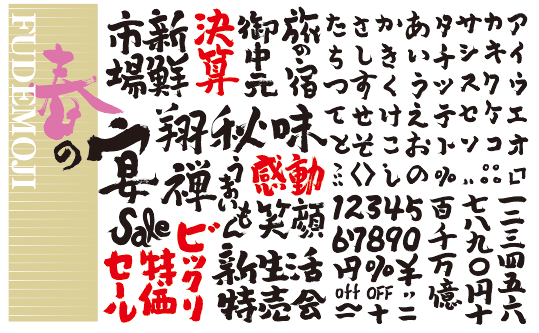 FUDEMOJI
春の宴
アイウエオ
カキクケコ
サシスセソ
タチツテト%
あいうえおの
かきくけこし
さしすせそ
たちつてと
旅の宿
御中元
決算
新鮮
市場
味
秋
翔
感動
うまいもん
禅
顔
笑
Sale
ビックリ
特価
セール
新生活
特売会
12345
67890
円%¥
off OFF
一二三四五六
七八九〇円十
百千万億